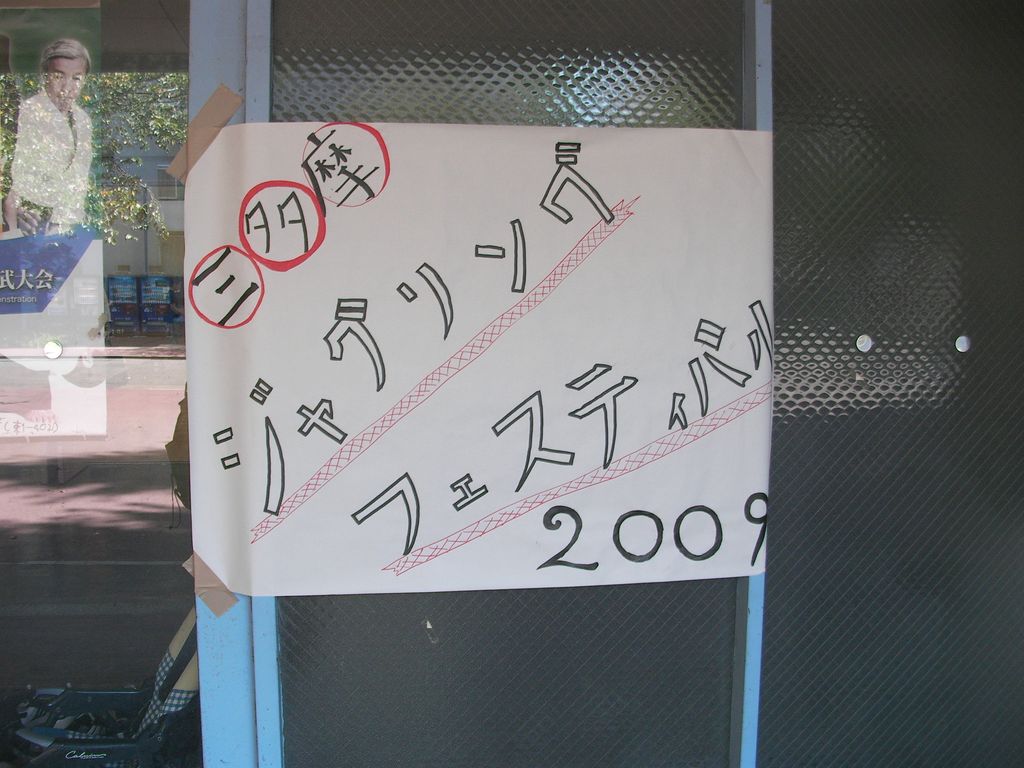 三多摩
ジャグリング
フェスティバル
2009
武大会
nstration